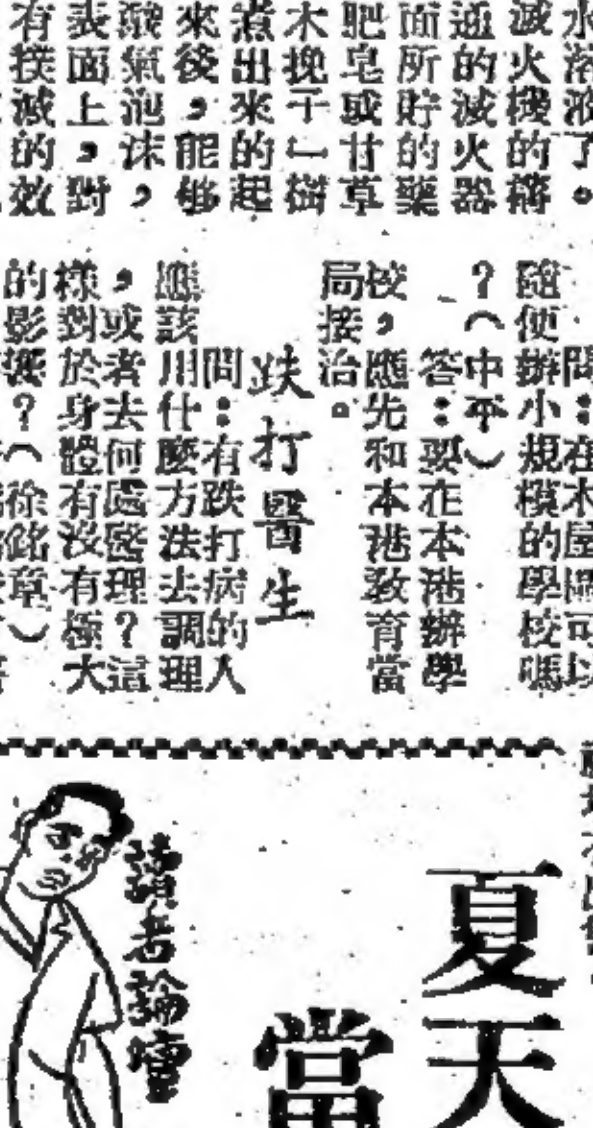 水溶液了。
滅火機的構
通的滅火器
面所貯的藥
肥皂或甘草
木挽干﹂樹
煮出來的起
來後，能够
酸氣泡沫，
表面上，對
有撲滅的效
問：在木屋區可以
隨便辦小規模的學校嗎
？（中平）
答：要在本港辦學
校，應先和本港教育當
局接洽。
跌打醫生
問：有跌打病的人
應該用什麼方法去調理
，或者去何處醫理？這
樣對於身體有沒有極大
的影響？（徐銘章）
夏天
當
讀者論壇